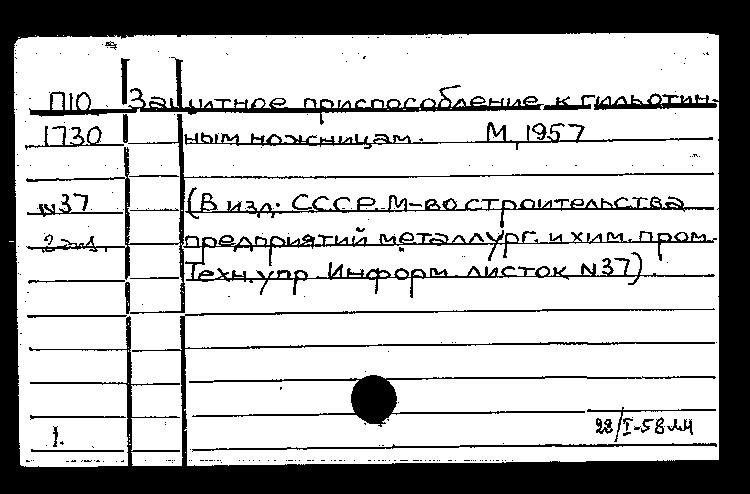 П10 Защитное приспособление к гильотин-
1730 ным ножницам. М, 1957
N37 (В изд: СССР. М-во строительства
2 экз. предприятий металлург. и хим. пром.
Техн. упр. Информ. листок N37).
1.
28/I-58